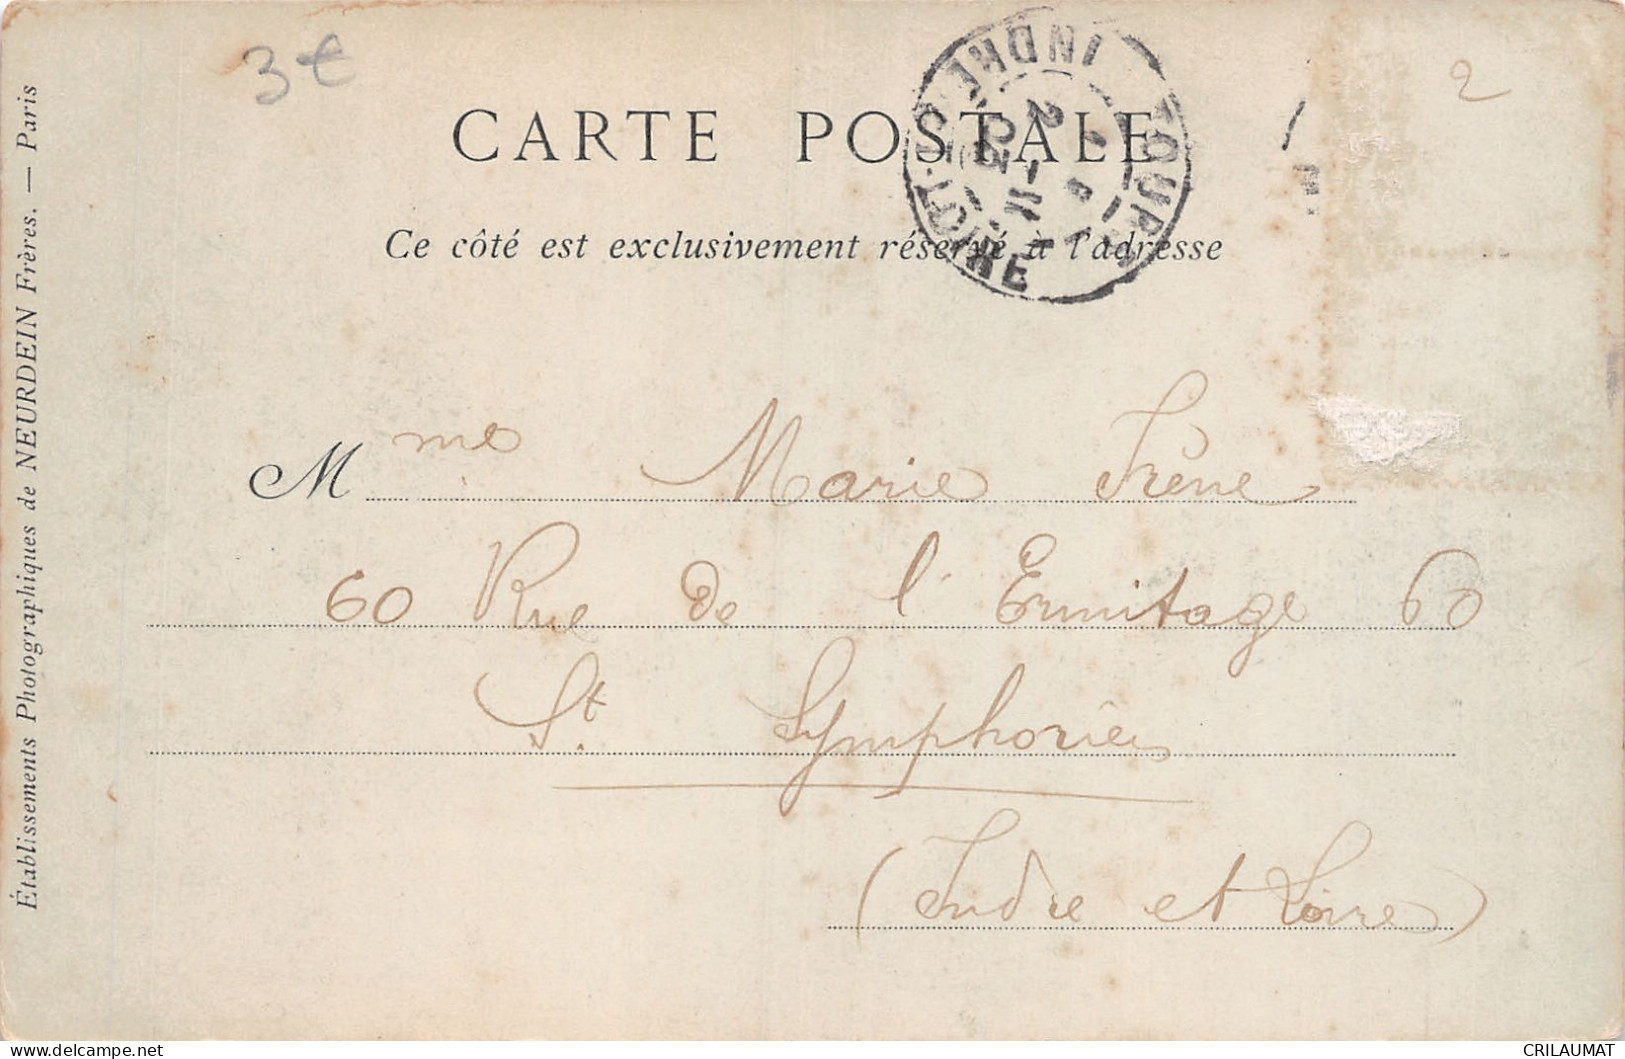 3€
2
CARTE POSTALE
Ce côté est exclusivement réservé à l'adresse
TOURS
INDRE-ET-LOIRE
Mme Marie Frêne
60 Rue de l'Ermitage 60
St. Symphorien
(Indre et Loire)
Établissements Photographiques de NEURDEIN Frères. — Paris
www.delcampe.net
CRILAUMAT